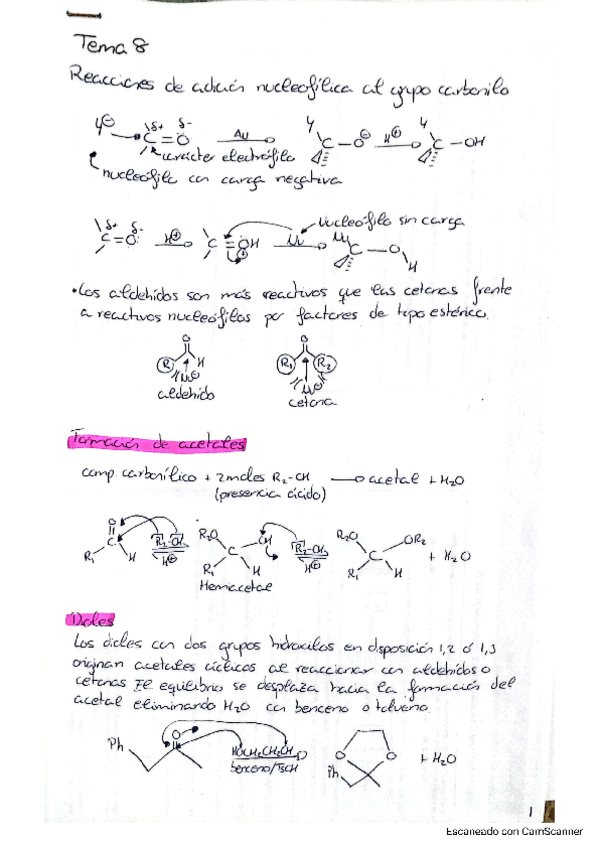 Tema 8
Reacciones de adición nucleofílica al grupo carbonilo
Y⊖ C=O δ+ δ- AU Y C-O⊖ H⊕ Y C-OH
carácter electrófilo
nucleófilo con carga negativa
Nucleófilo sin carga
δ+ δ- C=O H⊕ C=OH Nu Nu C-O H
•Los aldehídos son más reactivos que las cetonas frente
a reactivos nucleófilos por factores de tipo estérico.
O O
R H R1 R2
Nu⊖ Nu⊖
aldehído cetona
Formación de acetales
comp. carbonílico + 2 moles R2-OH → acetal + H2O
(presencia ácido)
O R2-OH R2O OH R2-OH R2O OR2
C H⊕ C H⊕ C + H2O
R1 H R1 H R1 H
Hemiacetal
Dioles
Los dioles con dos grupos hidroxilos en disposición 1,2 ó 1,3
originan acetales cíclicos al reaccionar con aldehídos o
cetonas. El equilibrio se desplaza hacia la formación del
acetal eliminando H2O con benceno o tolueno.
Ph O O O
benceno/TsOH Ph + H2O
1
Escaneado con CamScanner